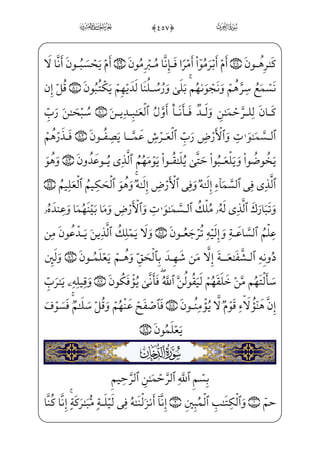 سورة الزخرف ﴿٤٥٧﴾ الجزء الخامس والعشرون
كَـٰرِهُونَ ﴿٧٨﴾ أَمْ أَبْرَمُوٓا۟ أَمْرًا فَإِنَّا مُبْرِمُونَ ﴿٧٩﴾ أَمْ يَحْسَبُونَ أَنَّا لَا
نَسْمَعُ سِرَّهُمْ وَنَجْوَىٰهُم ۚ بَلَىٰ وَرُسُلُنَا لَدَيْهِمْ يَكْتُبُونَ ﴿٨٠﴾ قُلْ إِن
كَانَ لِلرَّحْمَـٰنِ وَلَدٌ فَأَنَا۠ أَوَّلُ ٱلْعَـٰبِدِينَ ﴿٨١﴾ سُبْحَـٰنَ رَبِّ
ٱلسَّمَـٰوَٰتِ وَٱلْأَرْضِ رَبِّ ٱلْعَرْشِ عَمَّا يَصِفُونَ ﴿٨٢﴾ فَذَرْهُمْ
يَخُوضُوا۟ وَيَلْعَبُوا۟ حَتَّىٰ يُلَـٰقُوا۟ يَوْمَهُمُ ٱلَّذِى يُوعَدُونَ ﴿٨٣﴾ وَهُوَ
ٱلَّذِى فِى ٱلسَّمَآءِ إِلَـٰهٌ وَفِى ٱلْأَرْضِ إِلَـٰهٌ ۚ وَهُوَ ٱلْحَكِيمُ ٱلْعَلِيمُ ﴿٨٤﴾
وَتَبَارَكَ ٱلَّذِى لَهُۥ مُلْكُ ٱلسَّمَـٰوَٰتِ وَٱلْأَرْضِ وَمَا بَيْنَهُمَا وَعِندَهُۥ
عِلْمُ ٱلسَّاعَةِ وَإِلَيْهِ تُرْجَعُونَ ﴿٨٥﴾ وَلَا يَمْلِكُ ٱلَّذِينَ يَدْعُونَ مِن
دُونِهِ ٱلشَّفَـٰعَةَ إِلَّا مَن شَهِدَ بِٱلْحَقِّ وَهُمْ يَعْلَمُونَ ﴿٨٦﴾ وَلَئِن
سَأَلْتَهُم مَّنْ خَلَقَهُمْ لَيَقُولُنَّ ٱللَّهُ ۖ فَأَنَّىٰ يُؤْفَكُونَ ﴿٨٧﴾ وَقِيلِهِۦ يَـٰرَبِّ
إِنَّ هَـٰٓؤُلَآءِ قَوْمٌ لَّا يُؤْمِنُونَ ﴿٨٨﴾ فَٱصْفَحْ عَنْهُمْ وَقُلْ سَلَـٰمٌ ۚ فَسَوْفَ
يَعْلَمُونَ ﴿٨٩﴾
سورة الدخان
بِسْمِ ٱللَّهِ ٱلرَّحْمَـٰنِ ٱلرَّحِيمِ
حمٓ ﴿١﴾ وَٱلْكِتَـٰبِ ٱلْمُبِينِ ﴿٢﴾ إِنَّآ أَنزَلْنَـٰهُ فِى لَيْلَةٍ مُّبَـٰرَكَةٍ ۚ إِنَّا كُنَّا